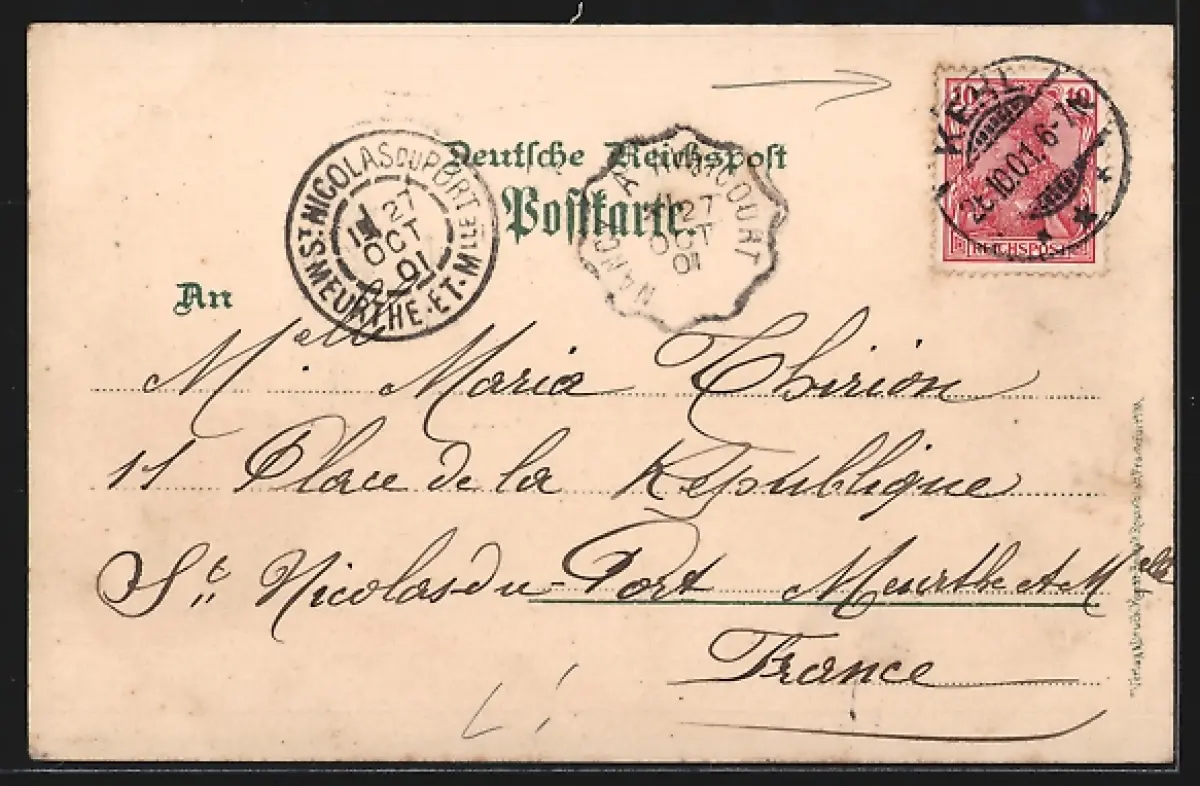 Deutsche Reichspost
Postkarte.
ST NICOLAS DU PORT
MEURTHE-ET-MLLE
27
OCT
01
NANCY A
27
OCT
01
10 10
REICHSPOST
KEHL
26.10.01. 6-7N
An
Melle Maria Thirion
11 Place de la Republique
St Nicolas du-Port Meurthe et Melle
France